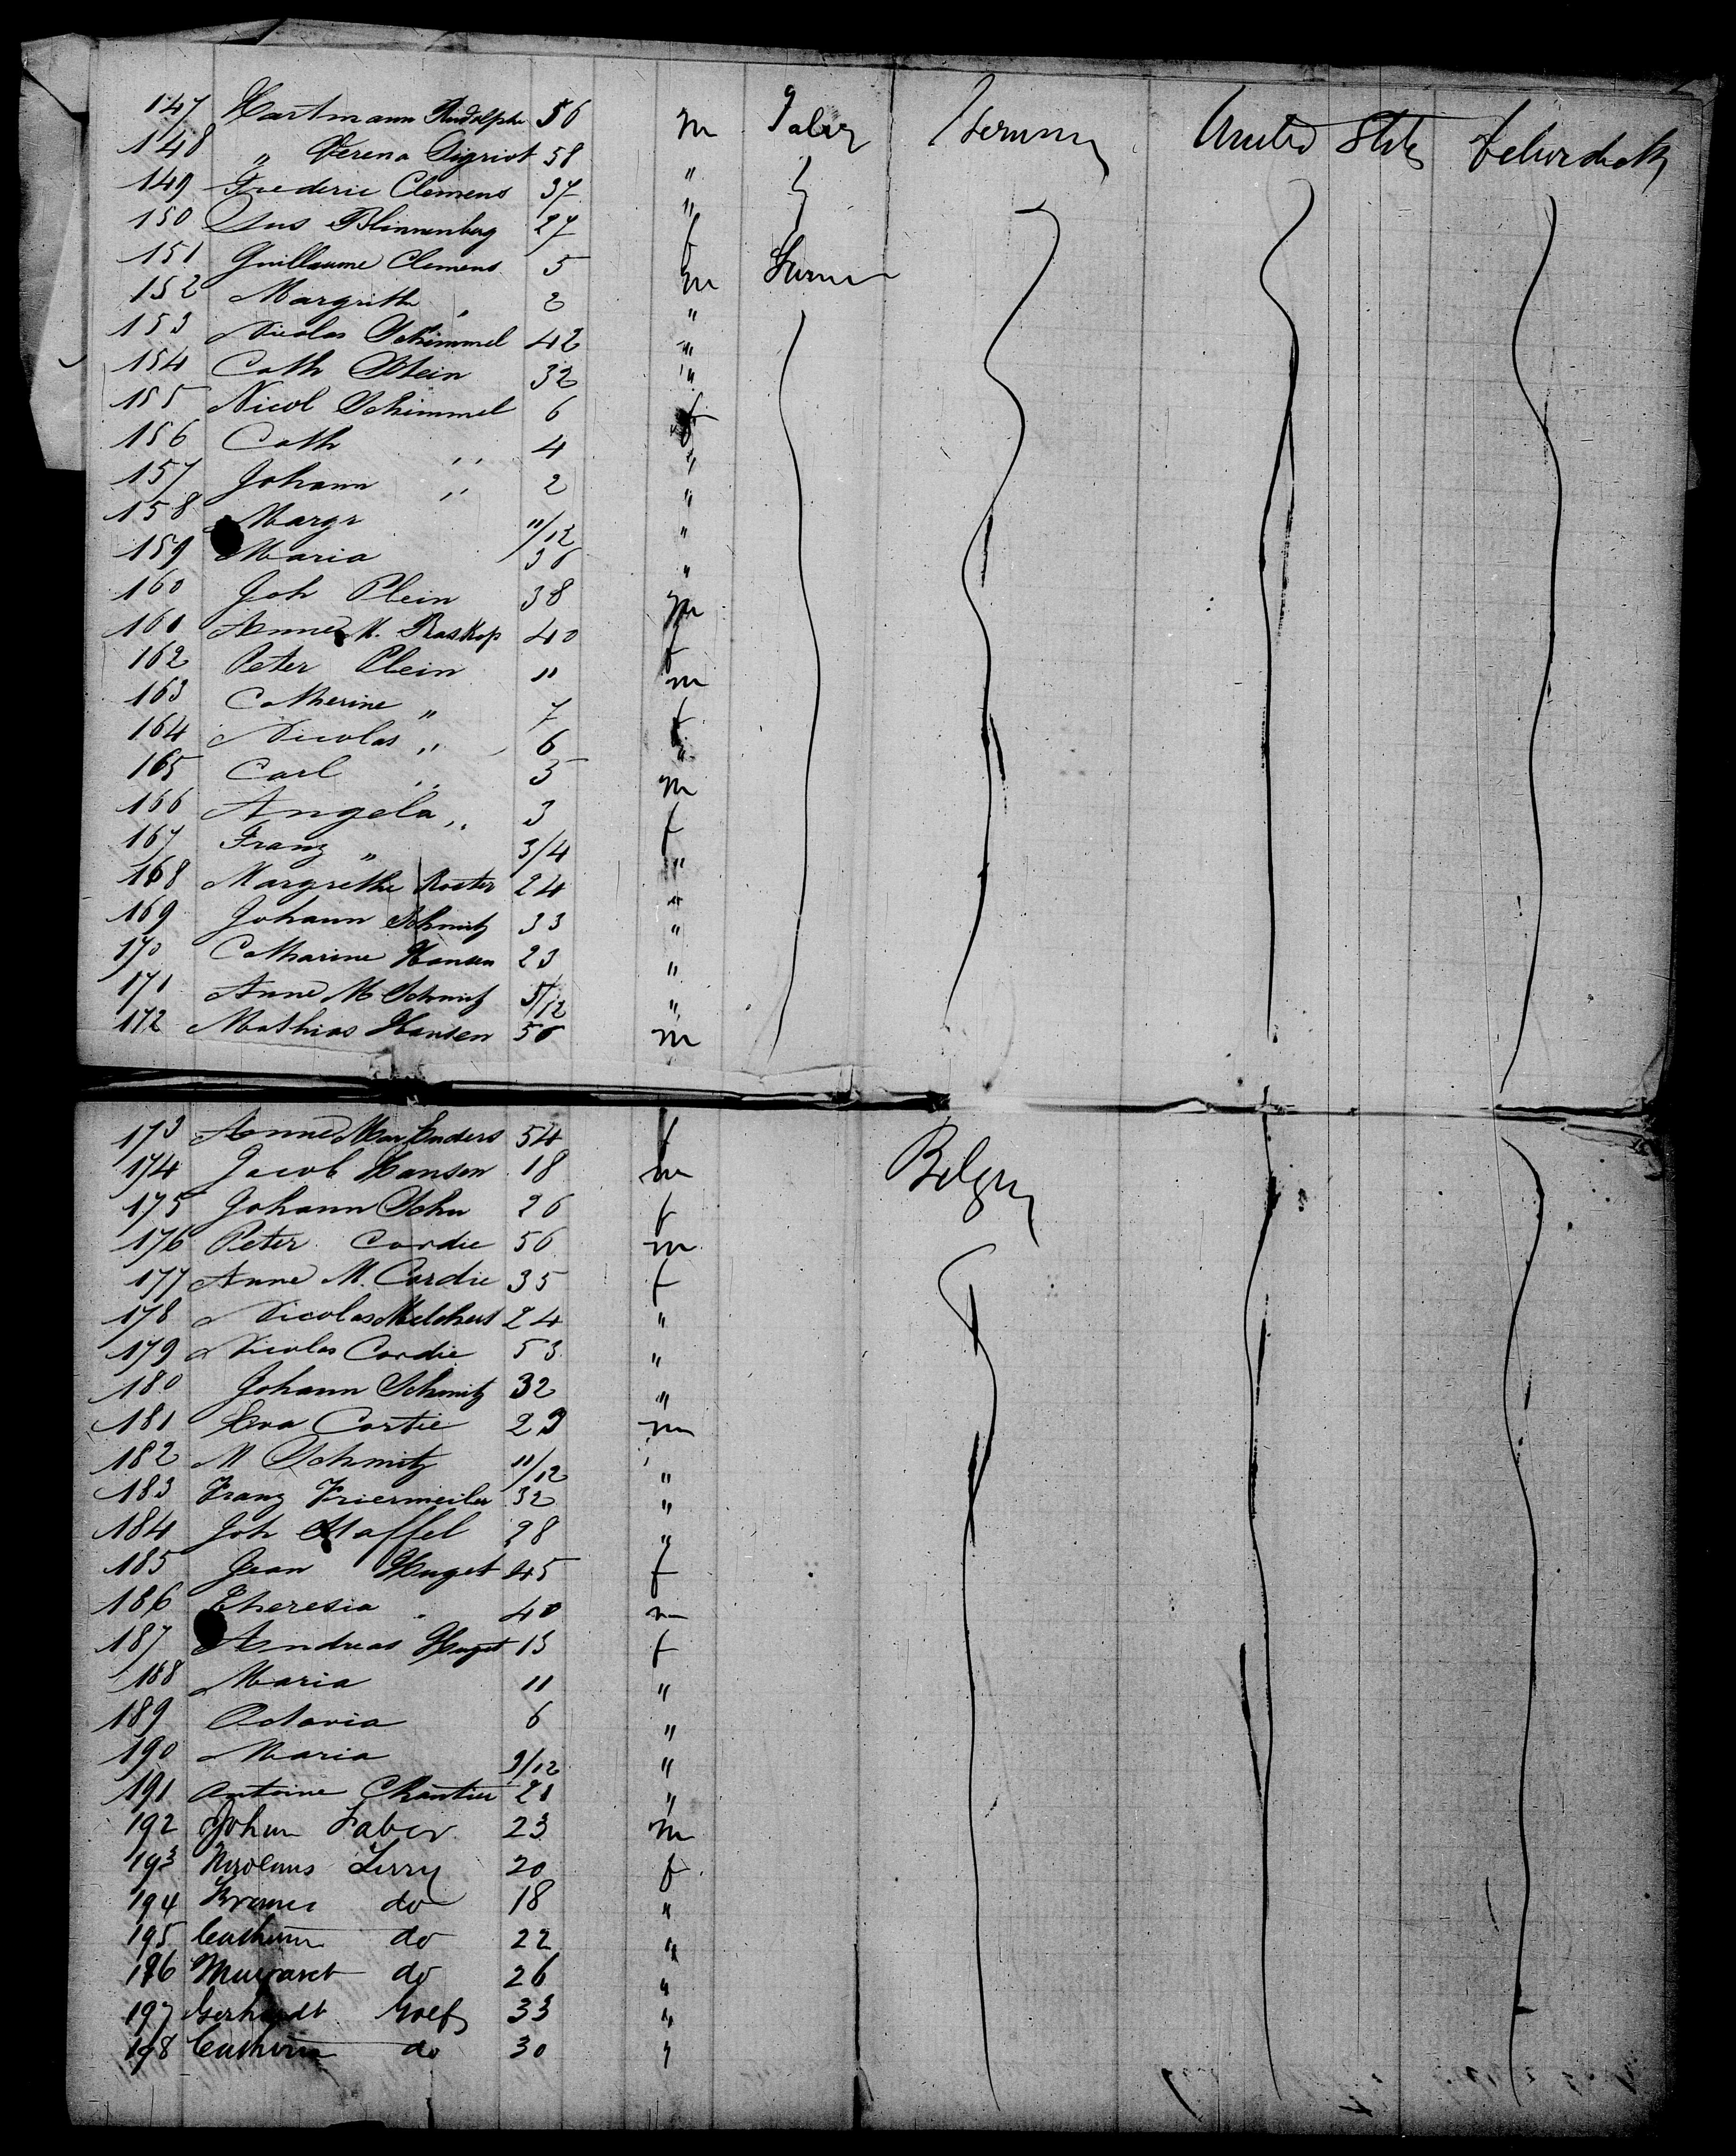 147 Hartmann Rudolphe 56 m Germany United States
148 " Verena Sigrist 58 "
149 Frederic Clemens 37 "
150 Blimmenberg 27 f
151 Guillaume Clemens 5 m
152 Margrith " 2 "
153 Nicolas Schimmel 42 "
154 Cath Stein 32 "
155 Nicol Schimmel 6 f
156 Cath " 4 "
157 Johann " 2 "
158 Margr 11/12 "
159 Maria 36 "
160 Joh Plein 38 m
161 Anne M. Raskop 40 f
162 Peter Plein 11 m
163 Catherine " 7 f
164 Nicolas " 6 "
165 Carl " 5 m
166 Angela " 3 f
167 Franz " 3/4 "
168 Margrethe Koster 24 "
169 Johann Schmitz 33 "
170 Catharine Hansen 23 "
171 Anne M Schmitz 5/12 "
172 Mathias Hansen 56 m
173 Anne Mar Enders 54 f
174 Jacob Hansen 18 m Belgium
175 Johann Schu 26 f
176 Peter Cordie 56 m
177 Anne M. Cordie 35 f
178 Nicolas Melchers 24 "
179 Nicolas Cordie 53 "
180 Johann Schmitz 32 "
181 Eva Cortie 29 m
182 M Schmitz 11/12 "
183 Franz Friermeiler 32 "
184 Joh Staffel 28 "
185 Jean Huget 45 f
186 Theresia " 40 m
187 Andreas Huget 13 f
188 Maria 11 "
189 Octavia 6 "
190 Maria 9/12 "
191 Antoine Chantier 21 "
192 Johan Faber 23 m
193 Nicolaus Lirry 20 f
194 do 18 "
195 Catherine do 22 "
196 Margaret do 26 "
197 Gerhardt Wolf 33 "
198 Catherine do 30 "